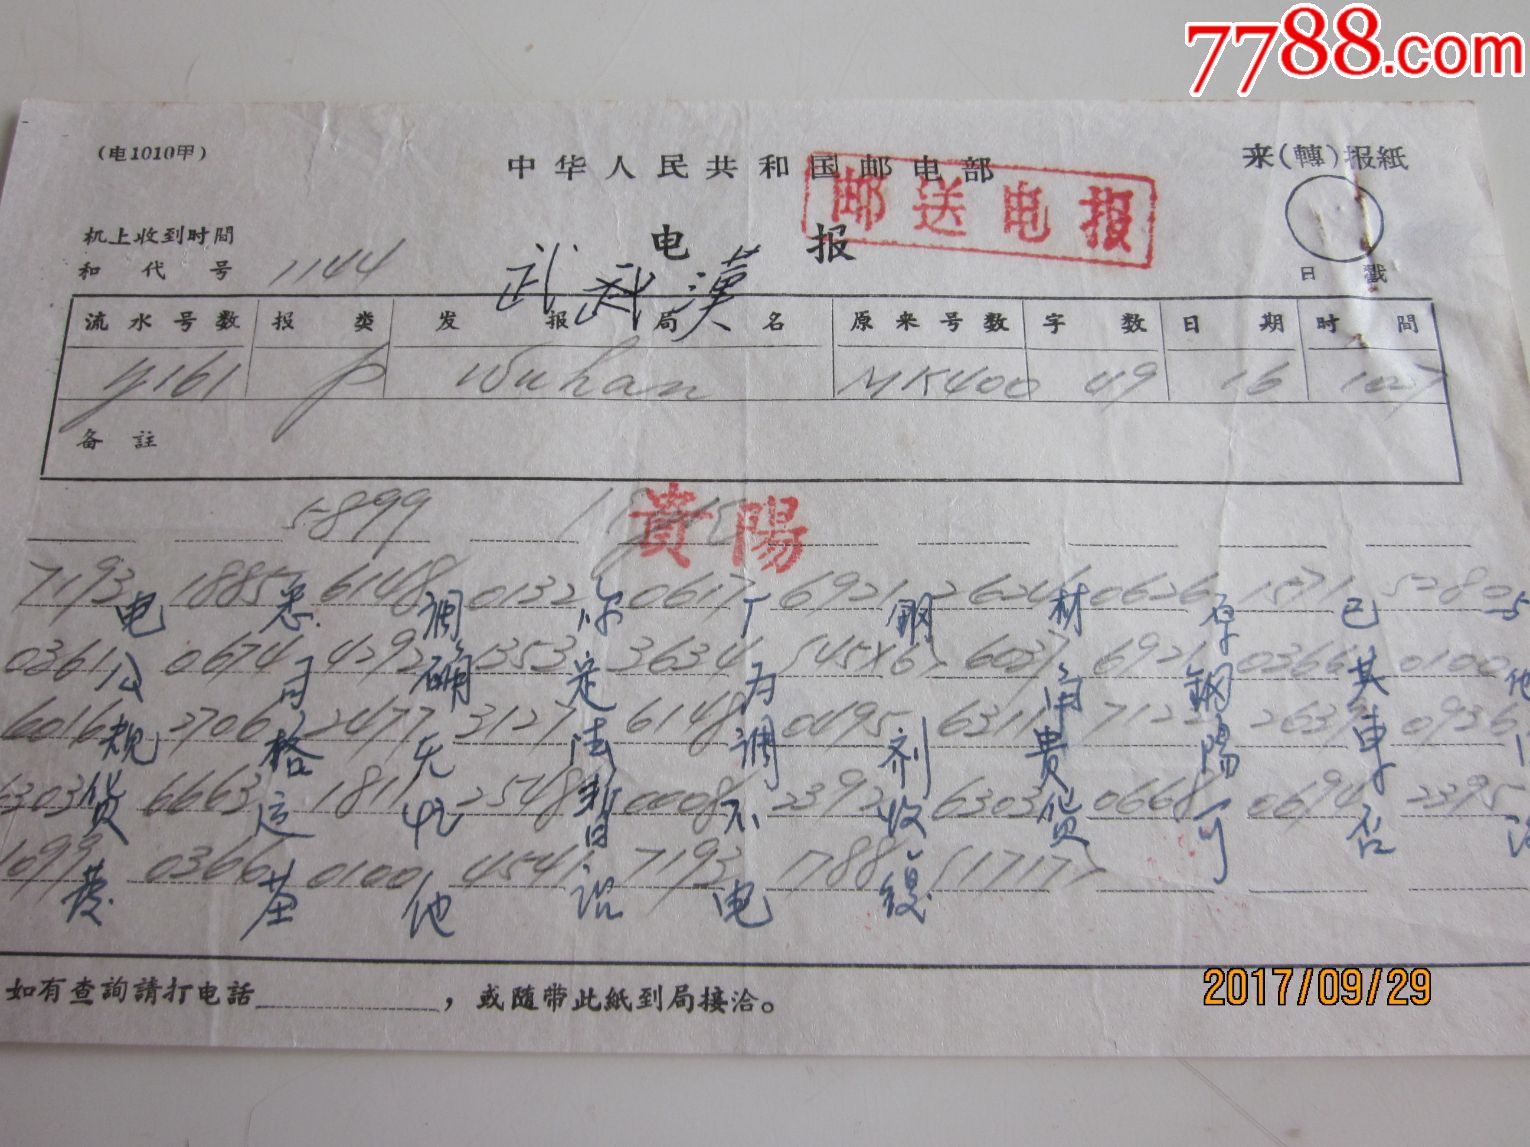 7788.com
(电1010甲)
中华人民共和国邮电部
来(轉)报紙
邮送电报
电报
机上收到时間
和代号 1144
武 武漢
日戳
流水号数 报类 发报局名 原来号数 字数 日期 时間
y161 p Wuhan MK400 49 16 1027
备註
5899
貴陽
7193 1885 6148 0132 0617 6921 2624 0626 1571 5280
电悉调你厂鋼材存已与
0361 0674 4292 1353 3634 6037 6921 0366 0100
公司确定为角鋼其他
6016 2706 2477 3127 6148 0495 6311 7122 2639 0936
规格无法调剂貴陽車
6303 6663 1811 2548 0008 2392 6303 0668 0694 2395
货运处暂不收货可否
1099 0366 0100 4541 7193 1788 (1717)
他 电
如有查詢請打电話，或隨带此紙到局接洽。
2017/09/29